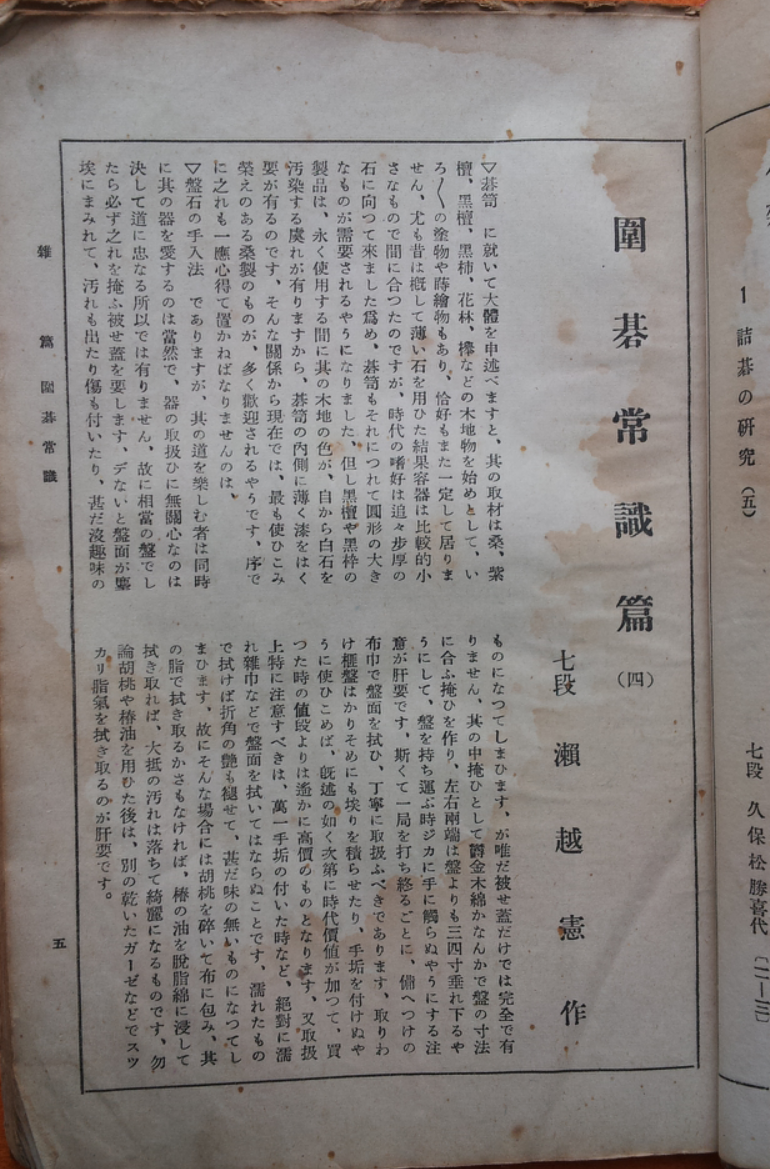 1 詰碁の研究（五）
七段 久保松勝喜代
圍碁常識篇（四）
七段 瀨越憲作
▽碁笥 に就いて大體を申述べますと、其の取材は桑、紫
檀、黑檀、黑柿、花林、欅などの木地物を始めとして、い
ろ〱の塗物や蒔繪物もあり、恰好もまた一定して居りま
せん、尤も昔は槪して薄い石を用ひた結果容器は比較的小
さなもので間に合つたのですが、時代の嗜好は追々步厚の
石に向つて來ました爲め、碁笥もそれにつれて圓形の大き
なものが需要されるやうになりました、但し黑檀や黑柿の
製品は、永く使用する間に其の木地の色が、自から白石を
汚染する虞れが有りますから、碁笥の內側に薄く漆をはく
要が有るのです、そんな關係から現在では、最も使ひこみ
榮えのある桑製のものが、多く歡迎されるやうです、序で
に之れも一應心得て置かねばなりませんのは、
▽盤石の手入法 でありますが、其の道を樂しむ者は同時
に其の器を愛するのは當然で、器の取扱ひに無關心なのは
決して道に忠なる所以では有りません、故に相當の盤でし
たら必ず之れを掩ふ被せ蓋を要します、デないと盤面が塵
埃にまみれて、汚れも出たり傷も付いたり、甚だ沒趣味の
ものになつてしまひます、が唯だ被せ蓋だけでは完全で有
りません、其の中掩ひとして鬱金木綿かなんかで盤の寸法
に合ふ掩ひを作り、左右兩端は盤よりも三四寸垂れ下るや
うにして、盤を持ち運ぶ時ジカに手に觸らぬやうにする注
意が肝要です、斯くて一局を打ち終るごとに、備へつけの
布巾で盤面を拭ひ、丁寧に取扱ふべきであります、取りわ
け榧盤はかりそめにも埃りを積らせたり、手垢を付けぬや
うに使ひこめば、旣述の如く次第に時代價値が加つて、買
つた時の値段よりは遙かに高價のものとなります、又取扱
上特に注意すべきは、萬一手垢の付いた時など、絕對に濡
れ雜巾などで盤面を拭いてはならぬことです、濡れたもの
で拭けば折角の艷も褪せて、甚だ味の無いものになつてし
まひます、故にそんな場合には胡桃を碎いて布に包み、其
の脂で拭き取るかさもなければ、椿の油を脫脂綿に浸して
拭き取れば、大抵の汚れは落ちて綺麗になるものです、勿
論胡桃や椿油を用ひた後は、別の乾いたガーゼなどでスツ
カリ脂氣を拭き取るのが肝要です。
雜 篇 圍碁常識
五